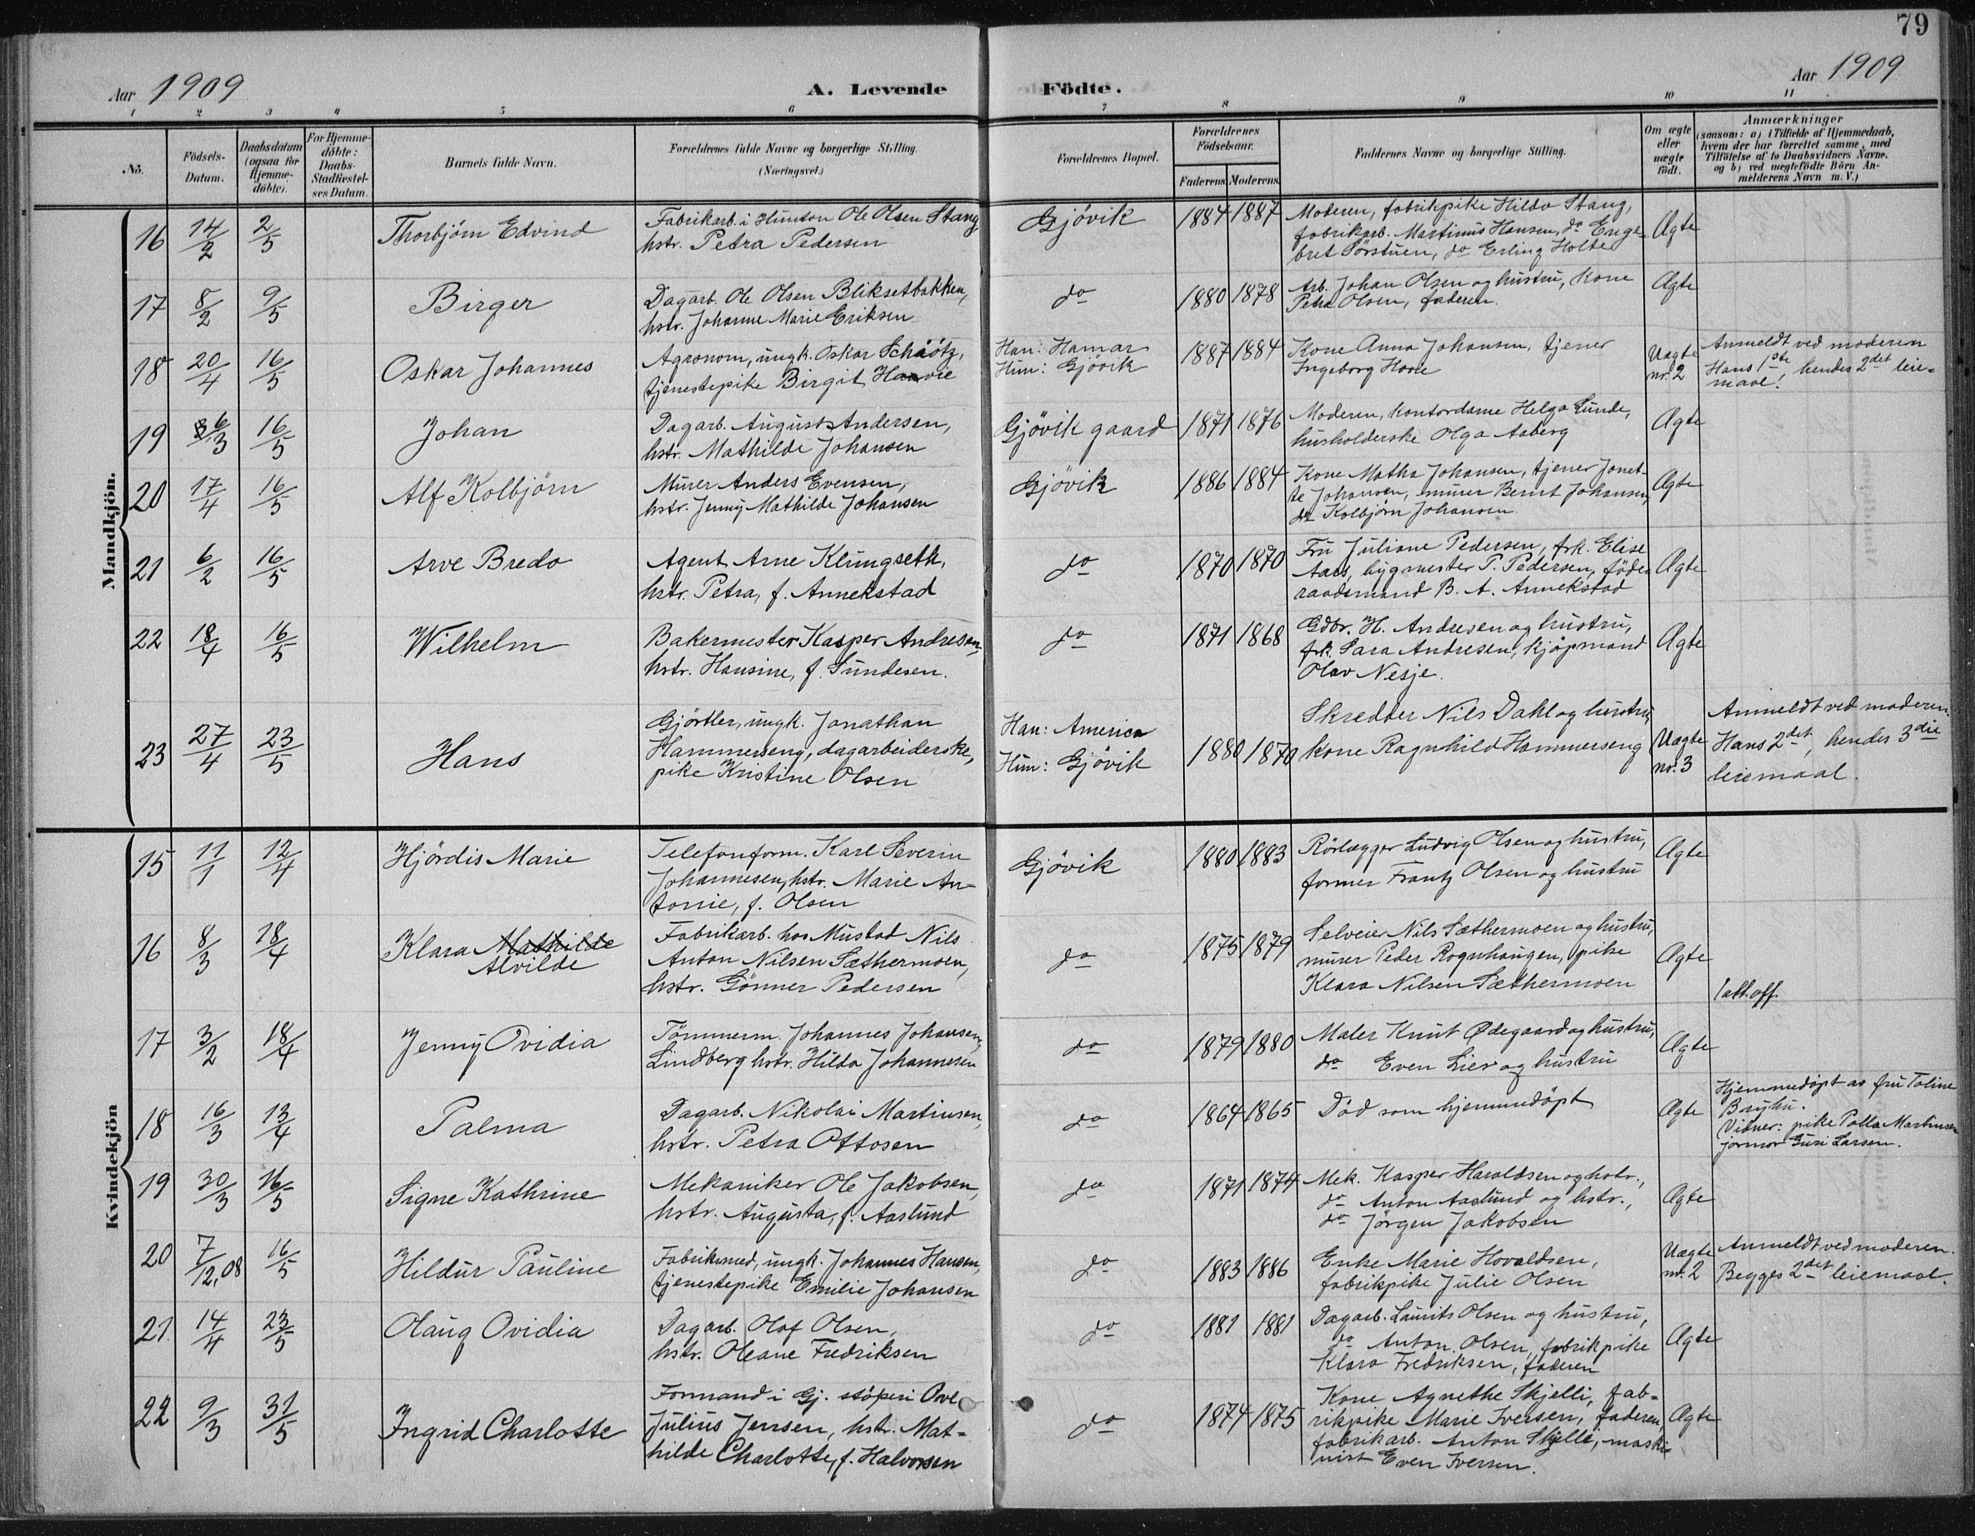 79
Aar 1909
A. Levende
Födte.
Aar 1909.
1 2 3 4 5 6 7 8 9 10 11
No.
Födsels-
Datum.
Daabsdatum
(ogsaa for
Hjemme-
döbte).
For Hjemme-
döbte:
Daabs-
Stadfæstel-
ses Datum.
Barnets fulde Navn.
Forældrenes fulde Navne og borgerlige Stilling.
(Næringsvei.)
Forældrenes Bopæl.
Forældrenes
Födselsaar.
Faderens. Moderens.
Faddernes Navne og borgerlige Stilling.
Om ægte
eller
uægte
födt.
Anmærkninger
(saasom: a) i Tilfælde af Hjemmedaab,
hvem der har forrettet samme, med
Tilföielse af to Daabsvidners Navne,
og b) ved uægtefödte Börn An-
melderens Navn m. V.)
Mandkjön.
16 14/2 2/5 Thorbjörn Edvind
Fabrikarb. i Hunton Ole Olsen Stang
hstr. Petra Pedersen
Gjövik 1884 1887
Moderen, fabrikpike Hilda Stang,
fabrikarb. Martinus Hansen, do Enge-
bret Sörstuen, do Erling Holte
Ægte
17 8/2 9/5 Birger
Dagarb. Ole Olsen Bliksetbakken,
hstr. Johanne Marie Eriksen
do 1880 1878
Arb. Johan Olsen og hustru, Kone
Petra Olsen, faderen.
Ægte
18 20/4 16/5 Oskar Johannes
Agronom, ungk. Oskar Schåötz,
tjenestepike Birgit Haavie
Han: Hamar
Hun: Gjövik
1887 1884
Kone Anna Johansen, tjener
Ingeborg Hove
Uægte
nr. 2
Anmeldt ved moderen
Hans 1ste, hendes 2det leie-
maal.
19 6/3 16/5 Johan
Dagarb. August Andersen,
hstr. Mathilde Johansen
Gjövik gaard 1871 1876
Moderen, kontordame Helga Lunde,
husholderske Olga Aaberg
Ægte
20 17/4 16/5 Alf Kolbjörn
Murer Anders Evensen,
hstr. Jenny Mathilde Johansen
Gjövik 1886 1884
Kone Matha Johansen, tjener Janet-
te Johansen, murer Bernt Johansen,
do Kolbjörn Johansen.
Ægte
21 6/2 16/5 Arve Bredo
Agent Arne Klungseth,
hstr. Petra, f. Annekstad
do 1870 1870
Fru Juliane Pedersen, frk. Elise
Aas, bygmester P. Pedersen, föde-
raadsmand B. A. Annekstad
Ægte
22 18/4 16/5 Wilhelm
Bakermester Kasper Andresen,
hstr. Hansine, f. Sundesen.
do 1871 1868
Gdbr. H. Andresen og hustru,
frk. Sara Andresen, kjöpmand
Olav Nesje.
Ægte
23 27/4 23/5 Hans
Gjörtler, ungk. Jonathan
Hammerseng, dagarbeiderske,
pike Kristine Olsen
Han: America
Hun: Gjövik
1880 1870
Skredder Nils Dahl og hustru,
kone Ragnhild Hammerseng
Uægte
nr. 3
Anmeldt ved moderen.
Hans 2det, hendes 3die
leiemaal.
Kvindekjön
15 11/1 12/4 Hjördis Marie
Telefonform. Karl Severin
Johannesen, hstr. Marie An-
tonie, f. Olsen
Gjövik 1880 1883
Rörlægger Ludvig Olsen og hustru,
former Frantz Olsen og hustru
Ægte
16 8/3 18/4 Klara Mathilde
Alvilde
Fabrikarb. hos Mustad Nils
Anton Nilsen Sæthermoen,
hstr. Gönner Pedersen
do 1875 1879
Selveier Nils Sæthermoen og hustru,
murer Peder Rognhaugen, pike
Klara Nilsen Sæthermoen
Ægte
1 att. off.
17 3/2 18/4 Jenny Ovidia
Tömmerm. Johannes Johansen
Lindberg hstr. Hilda Johannesen
do 1879 1880
Maler Knut Ødegaard og hustru,
do Even Lier og hustru
Ægte
18 16/3 13/4 Palma
Dagarb. Nikolai Martinsen,
hstr. Petra Ottosen
do 1864 1865
Död som hjemmedöpt
Ægte
Hjemmedöpt av fru Toline
Bryhn.
Vidner: pike Palla Martinsen
jormor Guri Larsen.
19 30/3 16/5 Signe Kathrine
Mekaniker Ole Jakobsen,
hstr. Augusta, f. Aaslund
do 1871 1874
Mek. Kasper Haraldsen og hstr.,
do Anton Aaslund og hstr.,
do Jörgen Jakobsen
Ægte
20 7/12.08 16/5 Hildur Pauline
Fabriksmed, ungk. Johannes Hansen,
tjenestepike Emilie Johansen
do 1883 1886
Enke Marie Hovaldsen,
fabrikpike Julie Olsen
Uægte
nr. 2
Anmeldt ved moderen.
Begges 2det leiemaal.
21 14/4 23/5 Olaug Ovidia
Dagarb. Olaf Olsen,
hstr. Oleane Fredriksen
do 1881 1881
Dagarb. Laurits Olsen og hustru,
do Anton Olsen, fabrikpike
Klara Fredriksen, faderen
Ægte
22 9/3 31/5 Ingrid Charlotte
Formand i Gj. stöperi Ove
Julius Jensen, hstr. Mat-
hilde Charlotte, f. Halvorsen
do 1874 1875
Kone Agnethe Skjelli, fab-
rikpike Marie Iversen, faderen,
fabrikarb. Anton Skjelli, maski-
nist Even Iversen.
Ægte